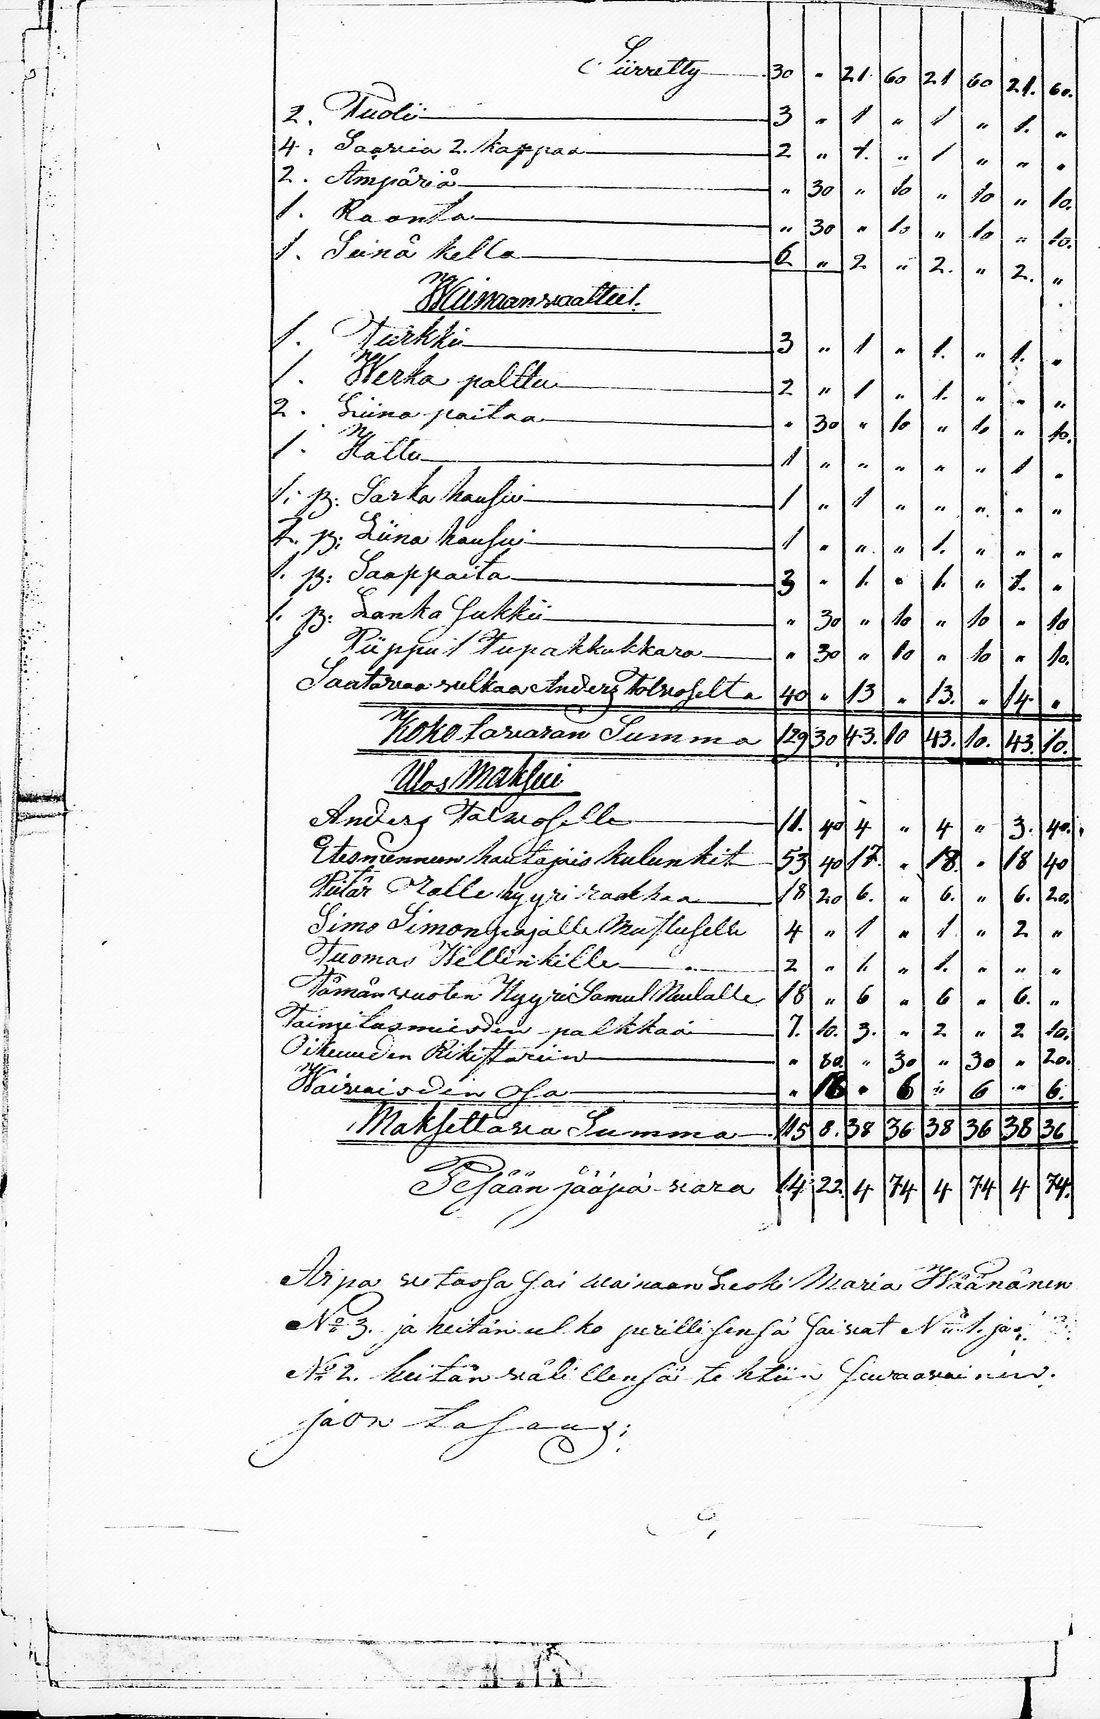 Siirretty 30 " 21 60 21 60 21. 60.
2. Tuoli 3 " 1 " 1 " 1. "
4. Saavia 2. kappaa 2 " 1. " 1 " " "
2. Ämpäriä " 30 " 10 " 10 " 10.
1. Raanta " 30 " 10 " 10 " 10.
1. Seinä kello 6 " 2 " 2. " 2. "
Wainaan vaatteet.
1. Turkki 3 " 1 " 1. " 1. "
1. Werka palttu 2 " 1 " 1. " " "
2. Liina paitaa " 30 " 10 " 10 " 10.
1. Hattu 1 " " " " " 1 "
1. p: Sarka housui 1 " 1 " " " " "
2. p; Liina housui 1 " " " 1. " " "
1. p: Saappaita 3 " 1. " 1. " 1. "
1. p: Lanka Sukkii " 30 " 10 " 10 " 10
1 Piippu 1 Tupakkakukkaro " 30 " 10 " 10 " 10.
Saatavaa velkaa Anders Tolvoselta 40 " 13 " 13. " 14. "
Koko tavaran Summa 129 30 43. 10 43. 10. 43. 10.
Ulos Maksui
Anders Tolvoselle 11. 40 4 " 4 " 3. 40.
Etesmenneen hautajais kulunkit 53 40 17. " 18. " 18 40
Pietär Rolle hyyri raahaa 18 20 6. " 6. " 6. 20.
Simo Simonpojalle Mustuselle 4 " 1 " 1 " 2 "
Tuomas Hellinkille 2 " 1. " 1. " " "
Tämän vuoten Hyyri Samul Nuulalle 18 " 6 " 6 " 6. "
Toimitusmiesden palkkaa 7. 10. 3. " 2 " 2 10.
Oikeuden Rikistariin " 80. " 30 " 30 " 20.
Waivaisdin Osa " 18 " 6 " 6 " 6.
Maksettava Summa 115 8. 38 36 38 36 38 36
Pesään jääpä vara 14 22 4 74 4 74 4 74.
Arpa vetossa sai wainaan Leski Maria Wäänänen
No 3. ja heitän ulko perillisensä saivat No 1. ja
No 2. heitän välillensä tehtiin seuraavainen
jaon tasaus;